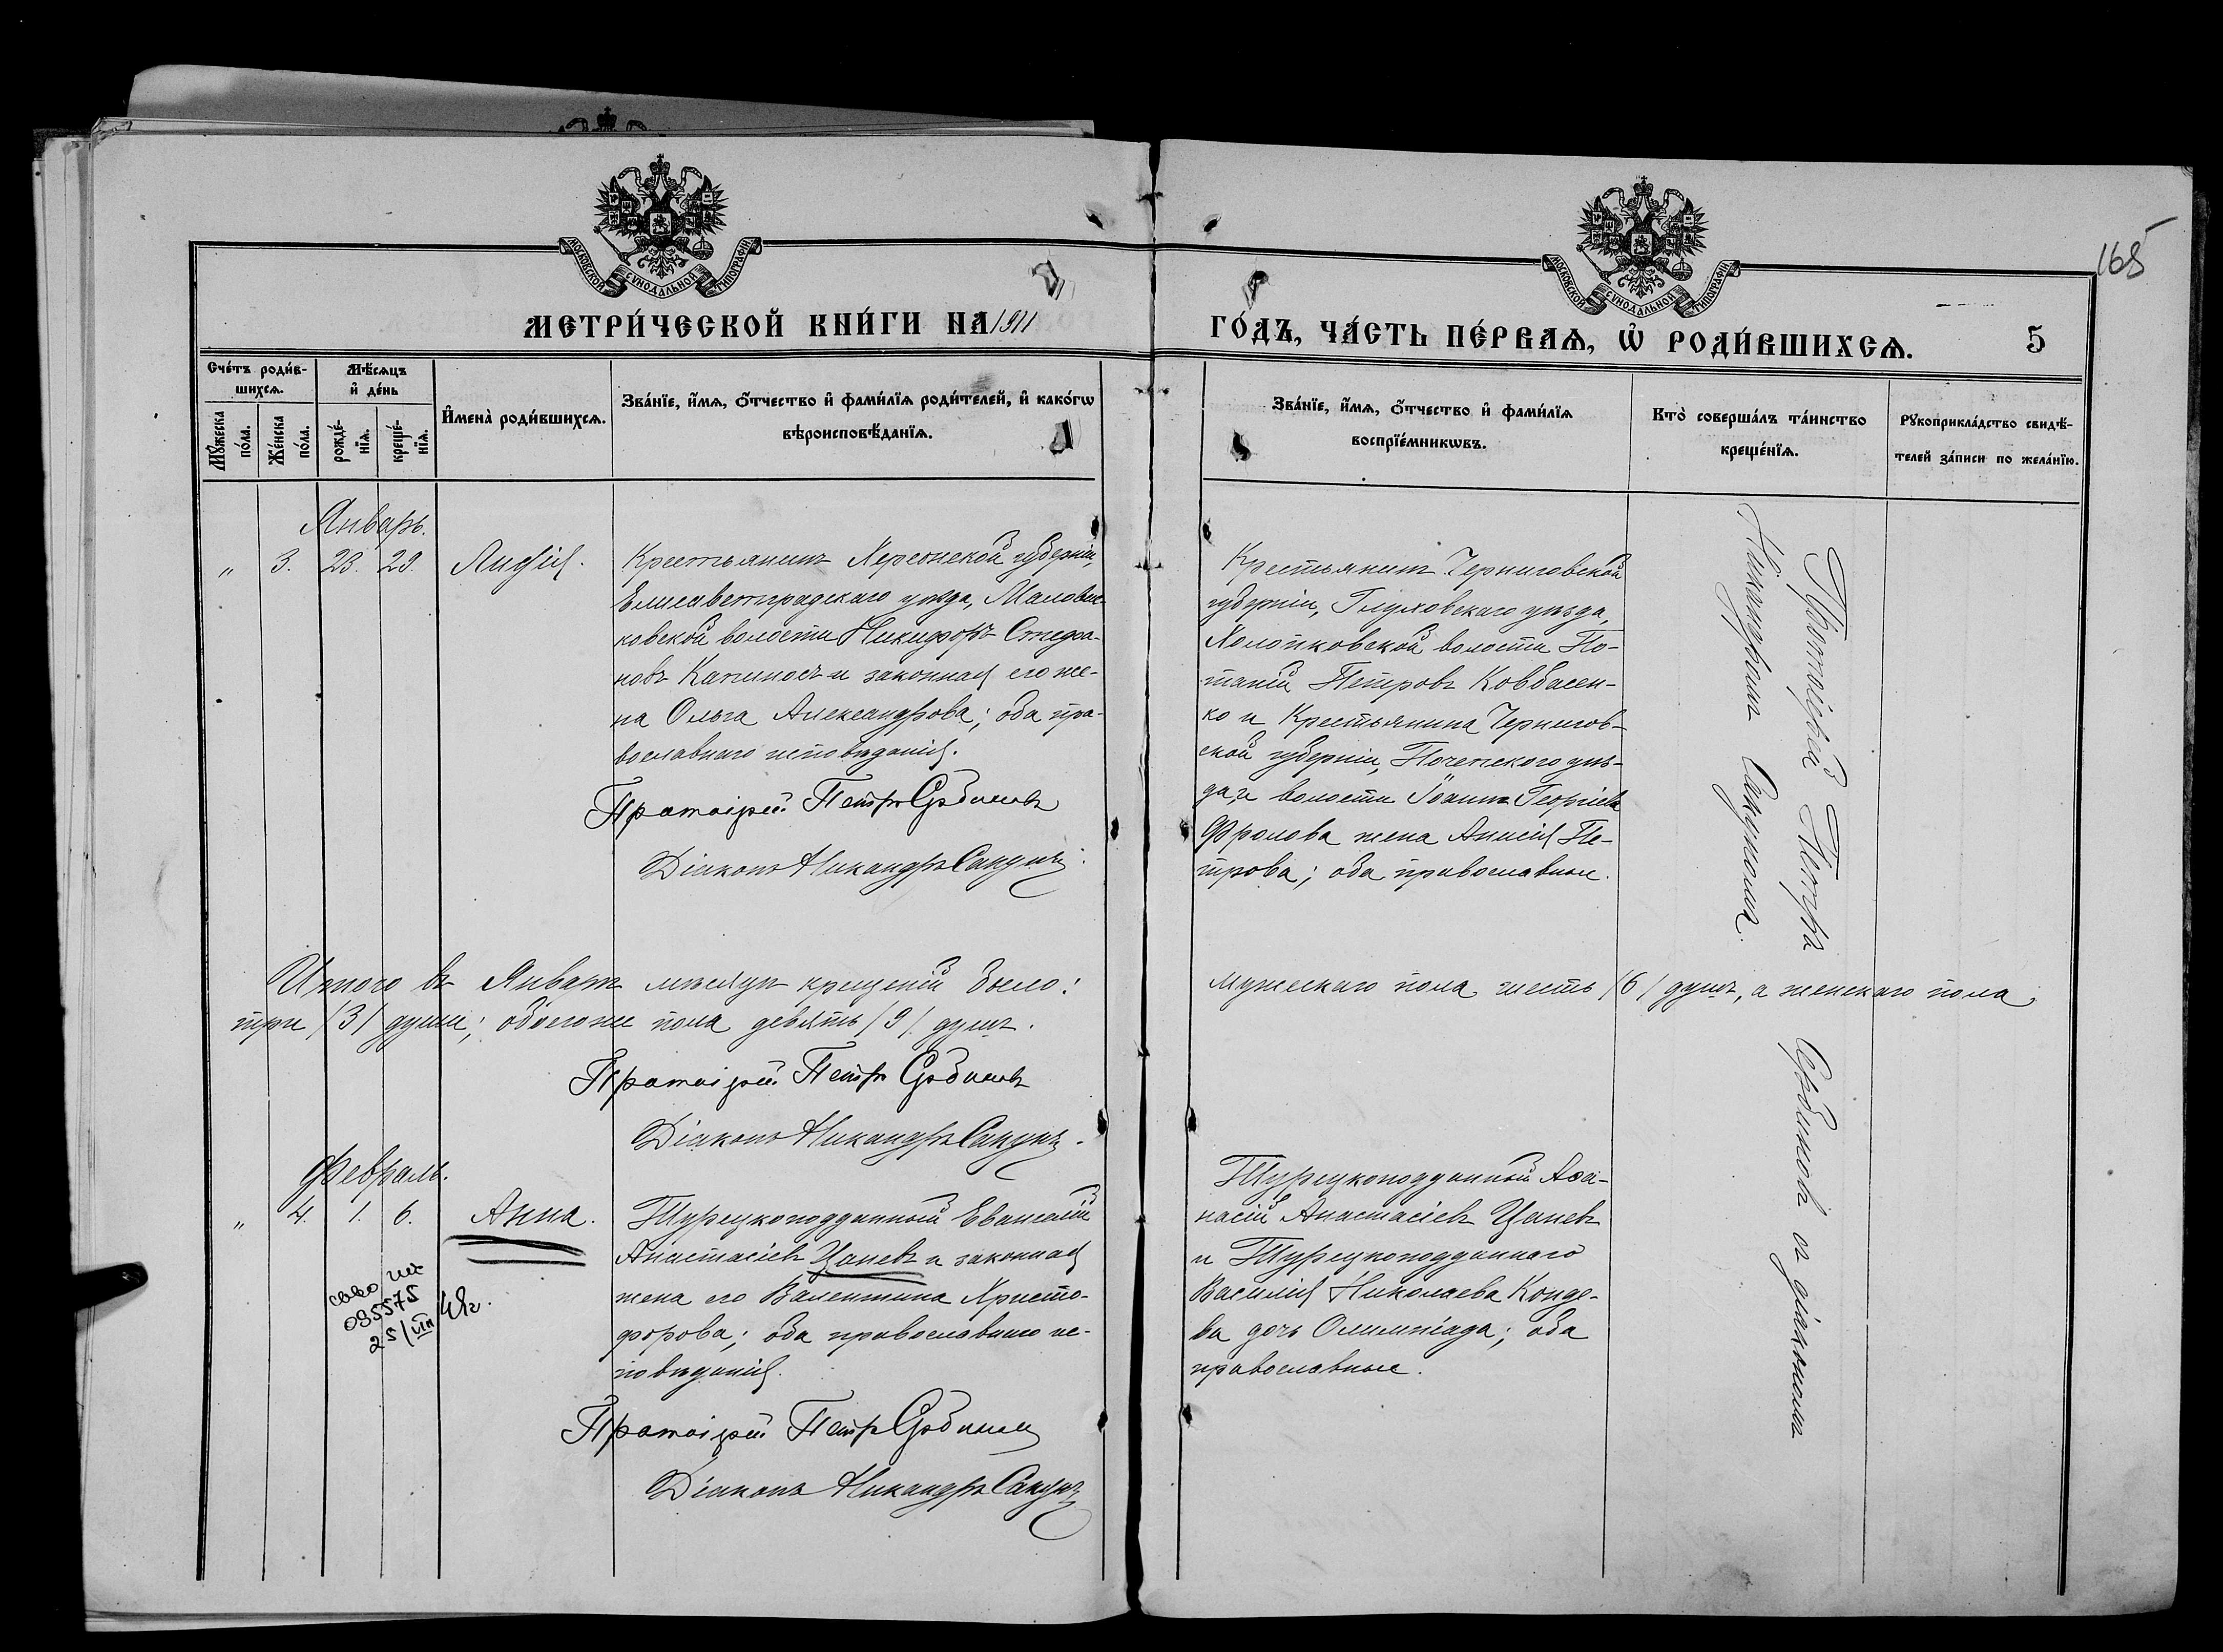 165
МОСКОВСКОЙ СѴНОДАЛЬНОЙ ТИПОГРАФІИ
МОСКОВСКОЙ СѴНОДАЛЬНОЙ ТИПОГРАФІИ
МЕТРИ́ЧЕСКОЙ КНИ́ГИ НА 1911
ГО́ДЪ, ЧА́СТЬ ПЕ́РВАѦ, Ѡ҆ РОДИ́ВШИХСѦ. 5
Сче́тъ роди́в-
шихсѧ.
Мꙋ́жеска по́ла.
Же́нска по́ла.
Мѣ́сѧцъ
и҆ де́нь
рожде́-
нїѧ.
креще́-
нїѧ.
И҆мена̀ роди́вшихсѧ.
Зва́нїе, и҆́мѧ, ѻ҆́тчество и҆ фами́лїѧ роди́телей, и҆ како́гѡ
вѣроисповѣ́данїѧ.
Зва́нїе, и҆́мѧ, ѻ҆́тчество и҆ фами́лїѧ
воспрїе́мникѡвъ.
Кто̀ соверша́лъ та́инство
креще́нїѧ.
Рꙋкоприкла́дство свидѣ́-
телей за́писи по жела́нїю.
Январь.
„ 3. 23. 29.
Крестьянинъ Херсонской губерніи,
Елисаветградскаго уѣзда, Маловис-
ковской волости Никифоръ Стефа-
новъ Капиносъ и законная его же-
на Ольга Александрова; оба пра-
вославнаго исповѣданія.
Протоіерей Петръ Сербиновъ
Діаконъ Никандръ Сакунъ.
Крестьянинъ Черниговской
губерніи, Глуховскаго уѣзда,
Холопковской волости По-
тапій Петровъ Ковбасен-
ко и Крестьянина Чернигов-
ской губерніи, Почепского уѣз-
да, и волости Іоанна Георгіева
Фролова жена Анисія Пе-
трова; оба православные.
Протоіерей Петръ Сербиновъ съ діакономъ
Никандромъ Сакуномъ.
Итого въ Январѣ мѣсяцѣ крещеній было:
мужескаго пола шесть /6/ душъ, а женскаго пола
три /3/ души; обоего же пола девять /9/ душъ.
Протоіерей Петръ Сербиновъ
Діаконъ Никандръ Сакунъ.
Февраль.
„ 4. 1. 6. Анна.
Турецкоподданный Евангелій
Анастасіевъ Цаневъ и законная
жена его Валентина Христо-
форова; оба православнаго ис-
повѣданія.
Протоіерей Петръ Сербиновъ
Діаконъ Никандръ Сакунъ
Турецкоподданный Аѳа-
насій Анастасіевъ Цаневъ
и Турецкоподданнаго
Василія Николаева Конде-
ва дочь Олимпіада; оба
православные.
095575
25/VIII 48г.